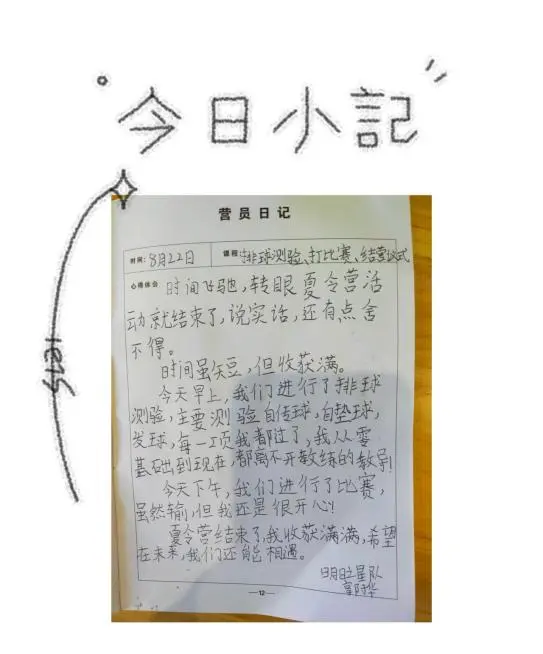 今日小記
营员日记
时间: 8月22日 课程: 排球测验、打比赛、结营仪式
心得体会 时间飞驰,转眼夏令营活
动就结束了,说实话,还有点舍
不得。
时间虽短,但收获满。
今天早上,我们进行了排球
测验,主要测验自传球,自垫球,
发球,每一项我都过了,我从零
基础到现在,都离不开教练的教导
今天下午,我们进行了比赛,
虽然输,但我还是很开心!
夏令营结束了,我收获满满,希望
在未来,我们还能相遇。
明日之星队
—12—